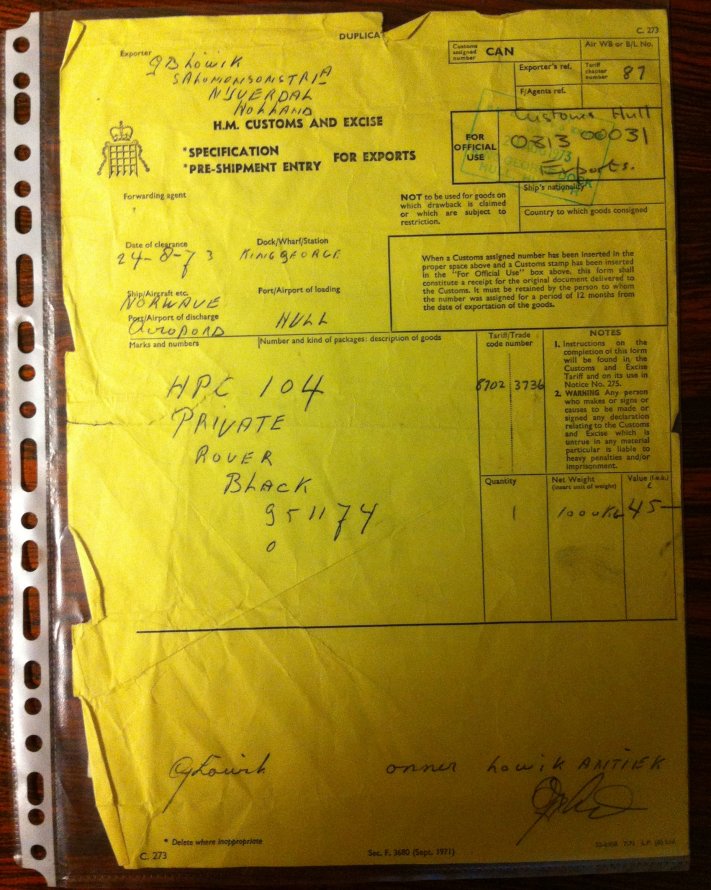 DUPLICAT
C. 273
Exporter
J B Lowik
SALOMONSONSTR
NIJVERDAL
HOLLAND
Customs assigned number
CAN
Air WB or B/L No.
Exporter's ref.
Tariff chapter number
87
F/Agents ref.
H.M. CUSTOMS AND EXCISE
*SPECIFICATION
*PRE-SHIPMENT ENTRY
FOR EXPORTS
FOR OFFICIAL USE
Customs Hull
0313 00031
Exports.
Forwarding agent
NOT to be used for goods on
which drawback is claimed
or which are subject to
restriction.
Ship's nationality
Country to which goods consigned
Date of clearance
24-8-73
Dock/Wharf/Station
KINGGEORGE
When a Customs assigned number has been inserted in the
proper space above and a Customs stamp has been inserted
in the "For Official Use" box above, this form shall
constitute a receipt for the original document delivered to
the Customs. It must be retained by the person to whom
the number was assigned for a period of 12 months from
the date of exportation of the goods.
Ship/Aircraft etc.
NORWAVE
Port/Airport of loading
HULL
Port/Airport of discharge
Marks and numbers
Number and kind of packages: description of goods
Tariff/Trade
code number
8702 3736
NOTES
1. Instructions on the
completion of this form
will be found in the
Customs and Excise
Tariff and on its use in
Notice No. 275.
2. WARNING Any person
who makes or signs or
causes to be made or
signed any declaration
relating to the Customs
and Excise which is
untrue in any material
particular is liable to
heavy penalties and/or
imprisonment.
HPC 104
PRIVATE
ROVER
BLACK
951174
0
Quantity
1
Net Weight
(insert unit of weight)
1000KG
Value (f.o.b.)
£
45-
onner Lowik ANTIEK
* Delete where inappropriate
C. 273
Sec. F. 3680 (Sept. 1971)